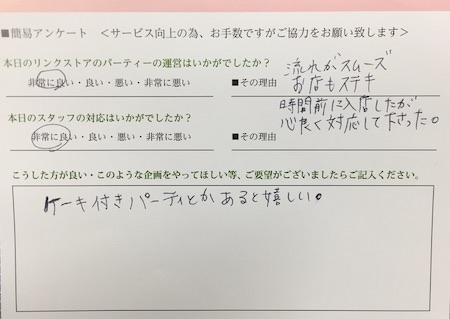 ■簡易アンケート　＜サービス向上の為、お手数ですがご協力をお願い致します＞
本日のリンクストアのパーティーの運営はいかがでしたか？
非常に良い・良い・悪い・非常に悪い　■その理由
流れがスムーズ
お店もステキ
本日のスタッフの対応はいかがでしたか？
非常に良い・良い・悪い・非常に悪い　■その理由
時間前に入店したが
心良く対応して下さった。
こうした方が良い・このような企画をやってほしい等、ご要望がございましたらご記入ください。
ケーキ付きパーティとかあると嬉しい。